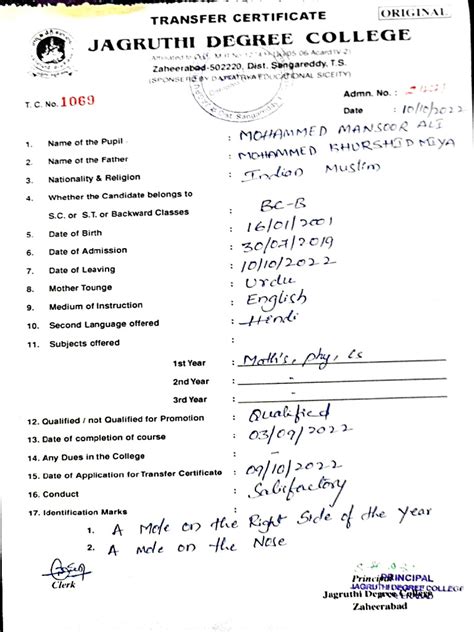 TRANSFER CERTIFICATE
ORIGINAL
JAGRUTHI DEGREE COLLEGE
Zaheerabad-502220, Dist. Sangareddy, T.S.
T. C. No. 1069
Admn. No. :
Date : 10/10/2022
1. Name of the Pupil : MOHAMMED MANSOOR ALI
2. Name of the Father : MOHAMMED KHURSHID MIYA
3. Nationality & Religion : Indian Muslim
4. Whether the Candidate belongs to
S.C. or S.T. or Backward Classes : BC-B
5. Date of Birth : 16/01/2001
6. Date of Admission : 30/07/2019
7. Date of Leaving : 10/10/2022
8. Mother Tounge : Urdu
9. Medium of Instruction : English
10. Second Language offered : Hindi
11. Subjects offered :
1st Year : Maths, phy, cs
2nd Year : "
3rd Year : "
12. Qualified / not Qualified for Promotion : Qualified
13. Date of completion of course : 03/09/2022
14. Any Dues in the College : -
15. Date of Application for Transfer Certificate : 09/10/2022
16. Conduct : Satisfactory
17. Identification Marks
1. A Mole on the Right Side of the Year
2. A mole on the Nose
Clerk
Principal
PRINCIPAL
JAGRUTHI DEGREE COLLEGE
Jagruthi Degree College
Zaheerabad